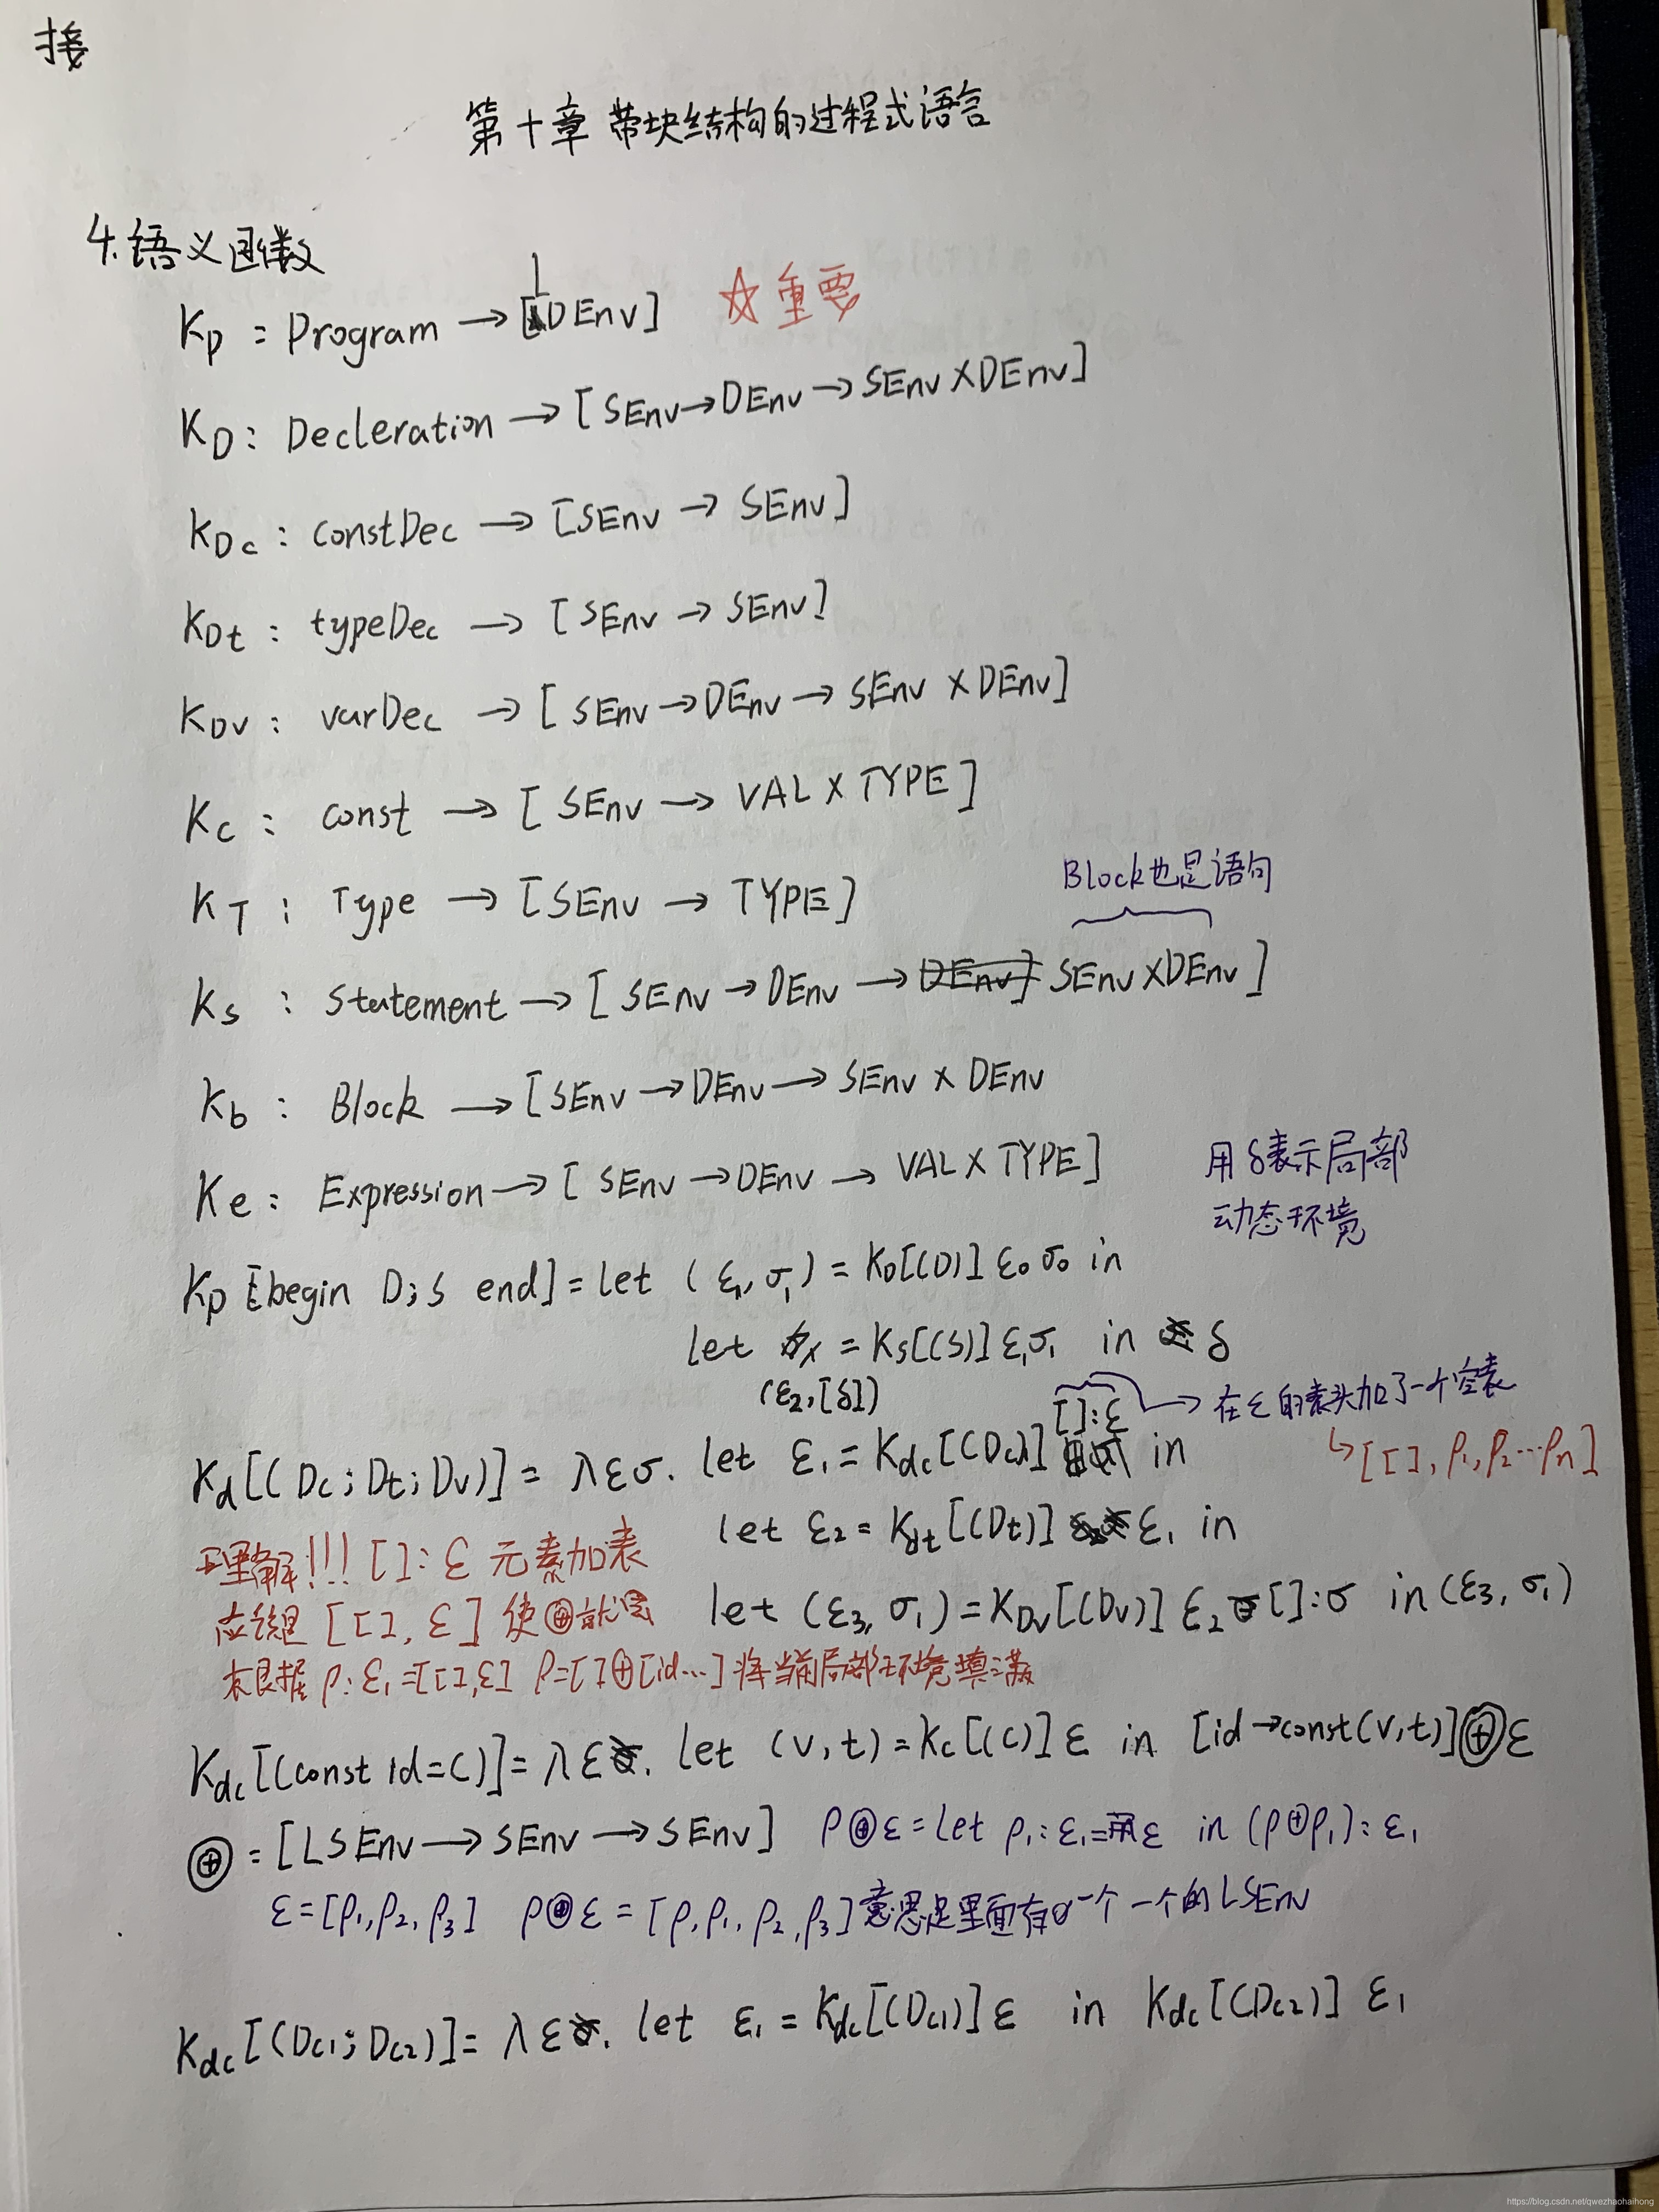 接
第十章 带块结构的过程式语言
4.语义函数
Kp = Program → [LDEnv] ☆重要
KD : Decleration → [SEnv→DEnv→SEnv×DEnv]
KDc : constDec → [SEnv → SEnv]
KDt : typeDec → [SEnv → SEnv]
KDv : varDec → [SEnv→DEnv→SEnv×DEnv]
Kc : const → [SEnv → VAL×TYPE]
Block也是语句
KT : Type → [SEnv → TYPE]
Ks : Statement → [SEnv→DEnv→DEnv] SEnv×DEnv]
Kb : Block → [SEnv→DEnv→SEnv×DEnv
用δ表示局部
Ke : Expression → [SEnv→DEnv→VAL×TYPE]
动态环境
Kp[begin D;S end] = let (ε1,σ1) = KD[(D)] ε0σ0 in
let = Ks[(S)] ε1σ1 in δ
(ε2,[δ])
[]:ε → 在ε的表头加了一个空表
Kd[(Dc;Dt;Dv)] = λεσ. let ε1 = Kdc[(Dc)] in
↳[[],ρ1,ρ2…ρn]
let ε2 = Kdt[(Dt)] ε1 in
理解!!! []:ε 元素加表
let (ε3,σ1) = KDv[(Dv)] ε2 []:σ in (ε3,σ1)
应该是 [[],ε] 使⊕就
根据 ρ:ε1=[[],ε] ρ=[]⊕[id…] 将当前局部环境填满
Kdc[(const id=C)] = λε. let (v,t) = Kc[(C)] ε in [id→const(v,t)]⊕ε
⊕ = [LSEnv → SEnv → SEnv] ρ⊕ε = let ρ1:ε1=ε in (ρ⊕ρ1):ε1
ε=[ρ1,ρ2,ρ3] ρ⊕ε=[ρ,ρ1,ρ2,ρ3] 意思是里面有一个一个的LSEnv
Kdc[(Dc1;Dc2)] = λε. let ε1 = Kdc[(Dc1)] ε in Kdc[(Dc2)] ε1
https://blog.csdn.net/qwezhaohaihong